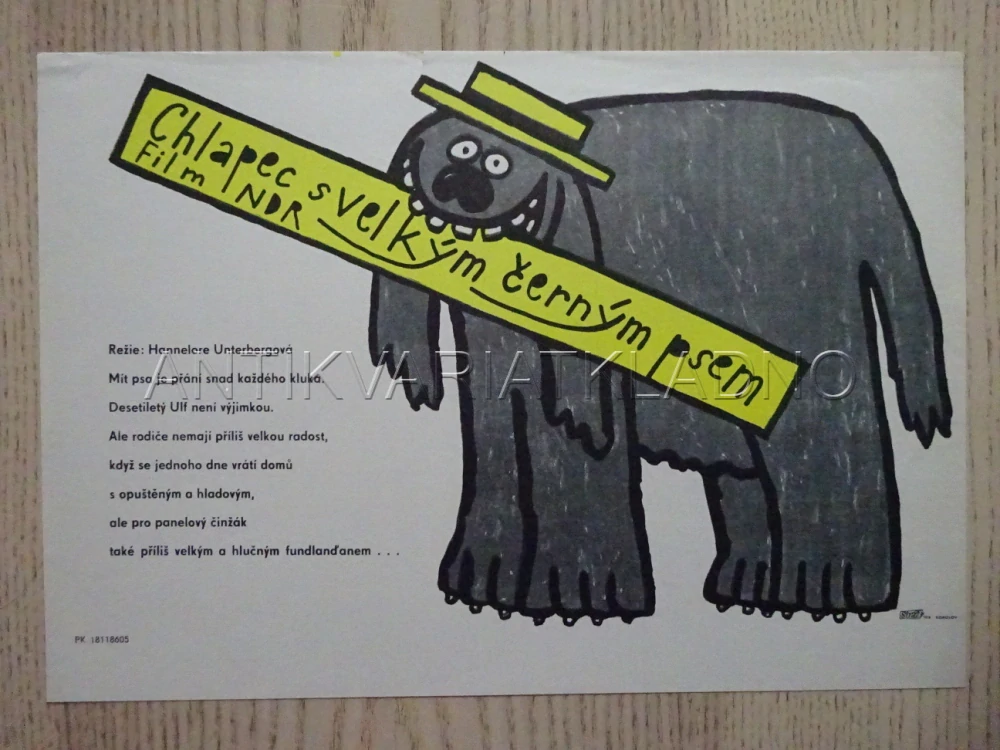 Chlapec s velkým černým psem
Film NDR
Režie: Hannelore Unterbergová
Mít psa je přání snad každého kluka.
Desetiletý Ulf není výjimkou.
Ale rodiče nemají příliš velkou radost,
když se jednoho dne vrátí domů
s opuštěným a hladovým,
ale pro panelový činžák
také příliš velkým a hlučným fundlanďanem . . .
ANTIKVARIATKLADNO
PK 18118605